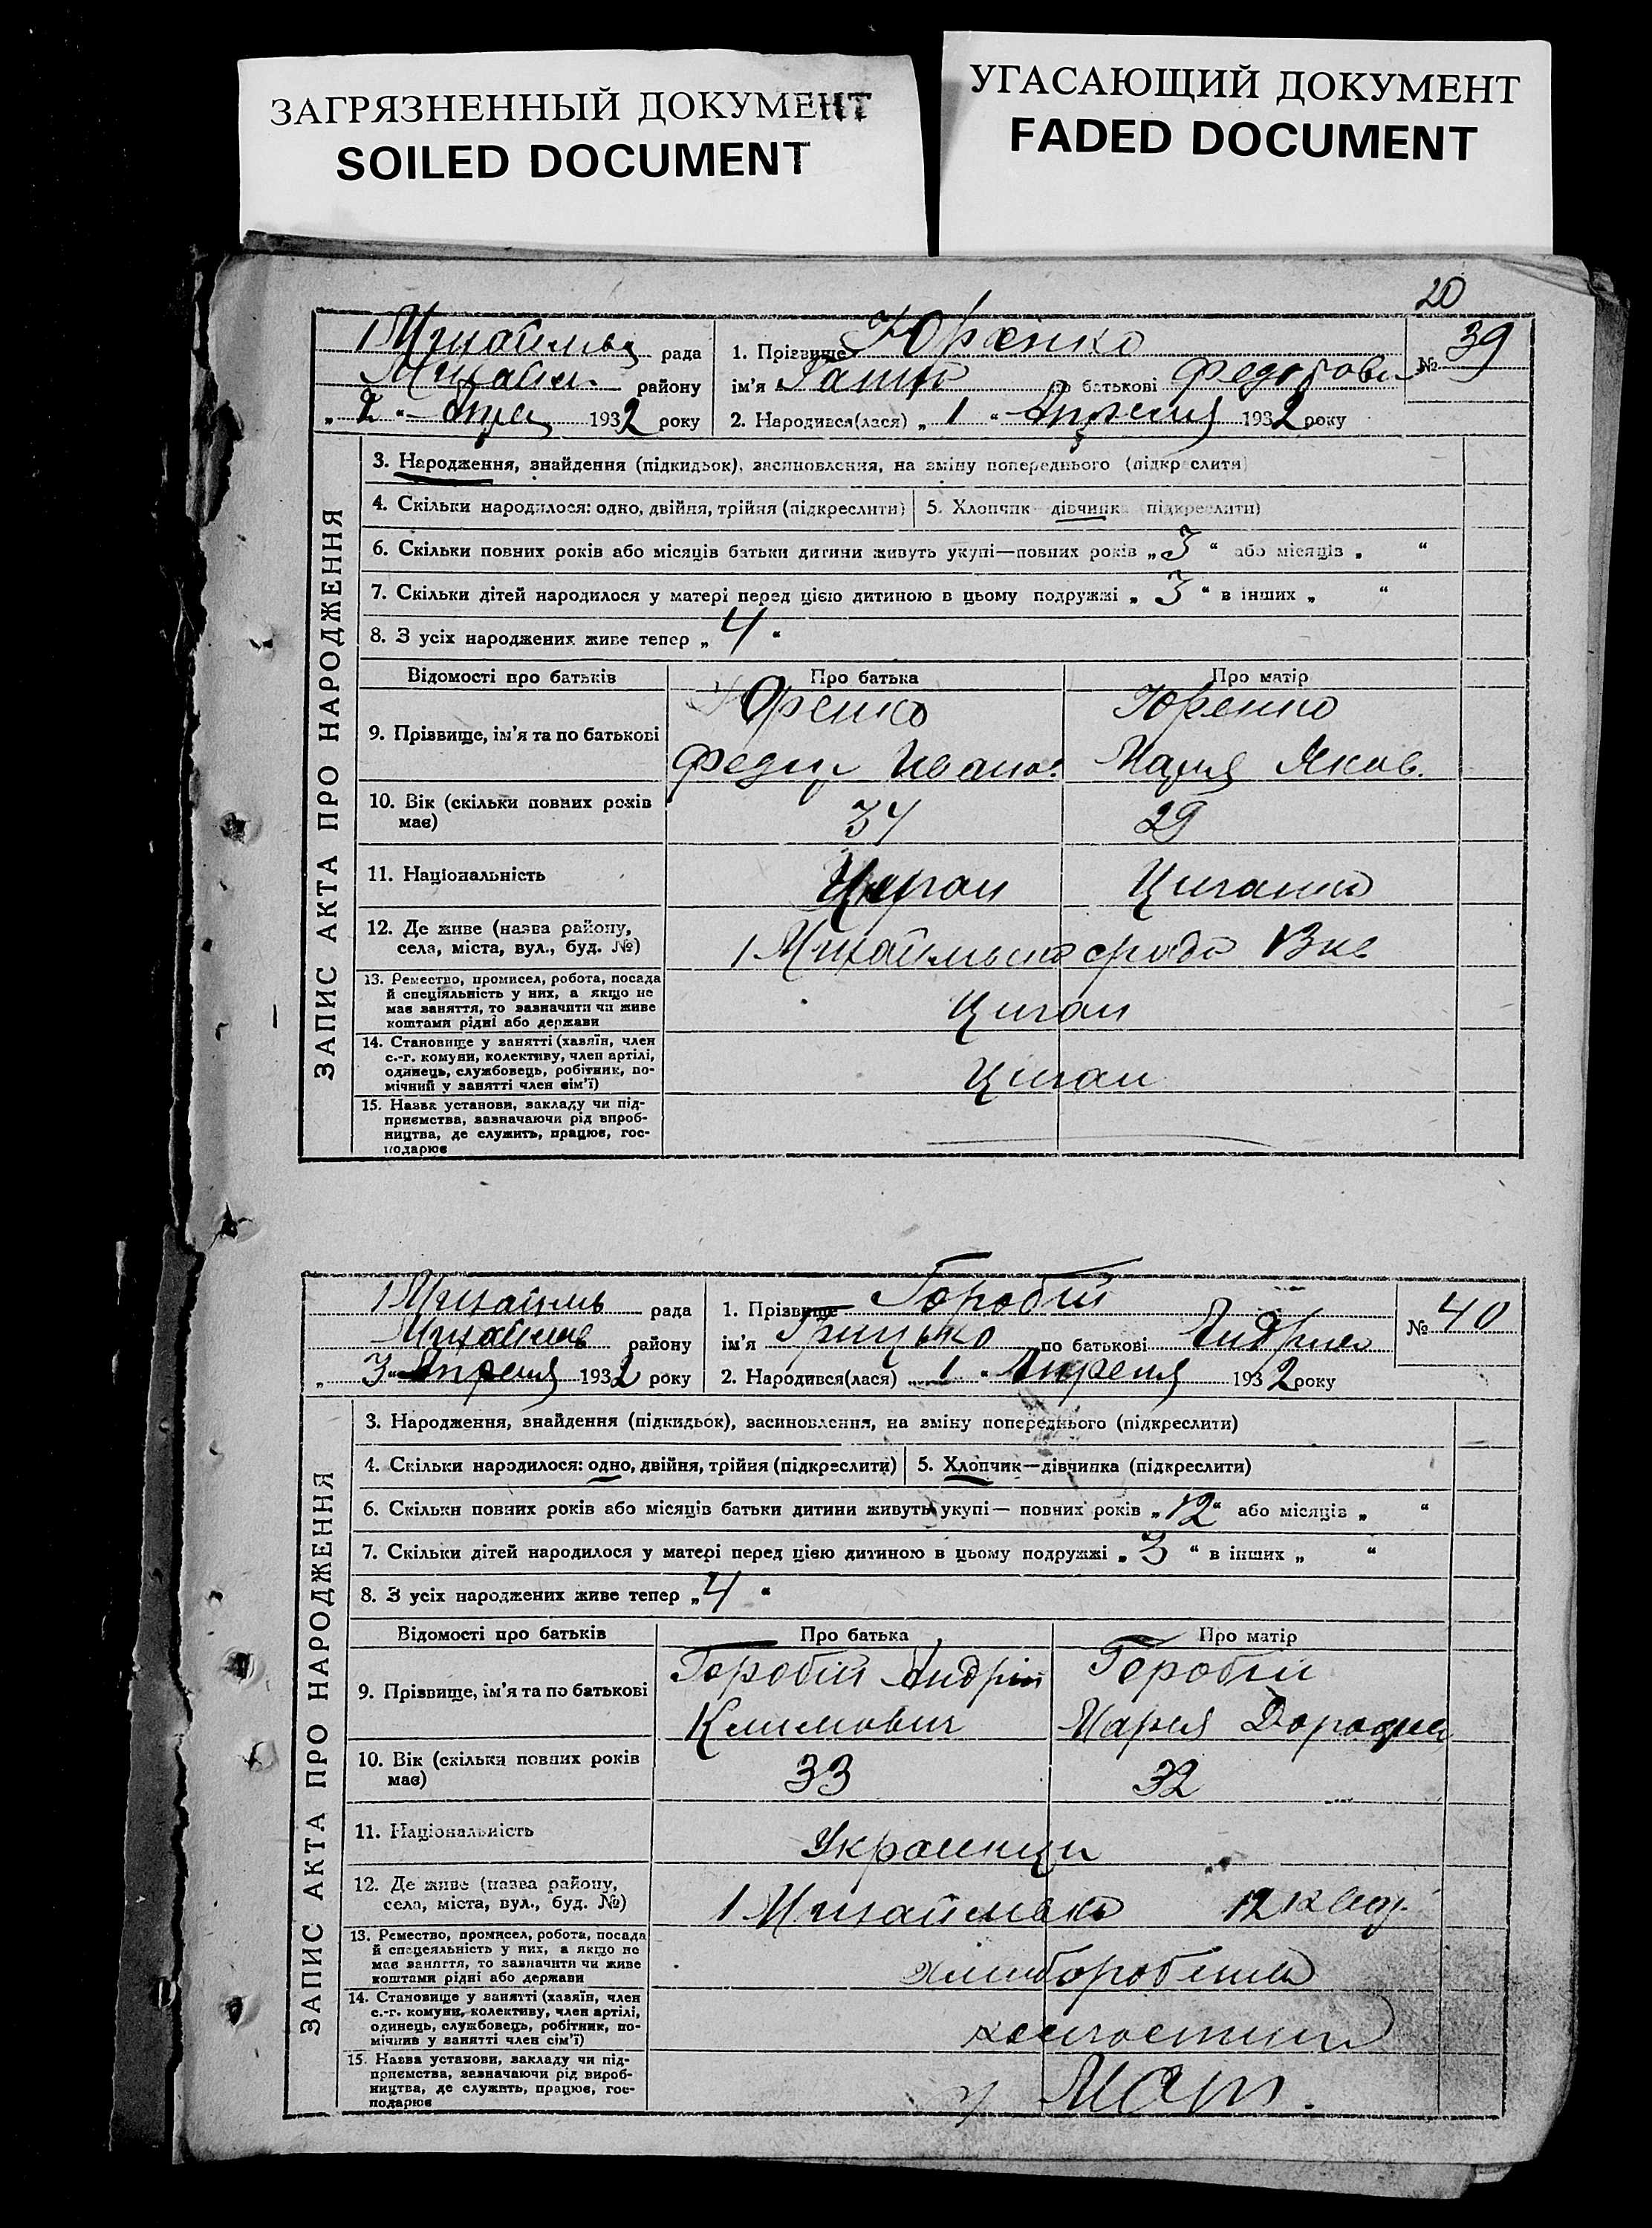 ЗАГРЯЗНЕННЫЙ ДОКУМЕНТ
SOILED DOCUMENT
УГАСАЮЩИЙ ДОКУМЕНТ
FADED DOCUMENT
20
рада
району
„ 2 “ 1932 року
1. Прізвище Юренко
ім'я по батькові
2. Народився(лася) „ 1 “ Апреля 1932 року
№ 39
ЗАПИС АКТА ПРО НАРОДЖЕННЯ
3. Народження, знайдення (підкидьок), засиновлення, на зміну попереднього (підкреслити)
4. Скільки народилося: одно, двійня, трійня (підкреслити)
5. Хлопчик—дівчинка (підкреслити)
6. Скільки повних років або місяців батьки дитини живуть укупі—повних років „ 3 “ або місяців „ “
7. Скільки дітей народилося у матері перед цією дитиною в цьому подружжі „ 3 “ в інших „ “
8. З усіх народжених живе тепер „ 4 “
Відомості про батьків
Про батька
Про матір
9. Прізвище, ім'я та по батькові
Юренко
Юренко
Мария Яков.
10. Вік (скільки повних років
має)
34
29
11. Національність
Циган
Циганка
12. Де живе (назва району,
села, міста, вул., буд. №)
13. Ремество, промисел, робота, посада
й спеціяльність у них, а якщо не
має заняття, то зазначити чи живе
коштами рідні або держави
Циган
14. Становище у занятті (хазяїн, член
с.-г. комуни, колективу, член артілі,
одинець, службовець, робітник, по-
мічний у занятті член сім'ї)
Циган
15. Назва установи, закладу чи під-
приємства, зазначаючи рід впроб-
ництва, де служить, працює, гос-
подарює
рада
району
„ 3 “ Апреля 1932 року
1. Прізвище Горобій
ім'я Грицько по батькові
2. Народився(лася) „ 1 “ Апреля 1932 року
№ 40
ЗАПИС АКТА ПРО НАРОДЖЕННЯ
3. Народження, знайдення (підкидьок), засиновлення, на зміну попереднього (підкреслити)
4. Скільки народилося: одно, двійня, трійня (підкреслити)
5. Хлопчик—дівчинка (підкреслити)
6. Скільки повних років або місяців батьки дитини живуть укупі— повних років „ 12 “ або місяців „ “
7. Скільки дітей народилося у матері перед цією дитиною в цьому подружжі „ 3 “ в інших „ “
8. З усіх народжених живе тепер „ 4 “
Відомості про батьків
Про батька
Про матір
9. Прізвище, ім'я та по батькові
Горобій Андрій
Климович
Горобій
Мария
10. Вік (скільки повних років
має)
33
32
11. Національність
Украинци
12. Де живе (назва району,
села, міста, вул., буд. №)
13. Ремество, промисел, робота, посада
й спецеяльність у них, а якщо не
має заняття, то зазначити чи живе
коштами рідні або держави
14. Становище у занятті (хазяїн, член
с.-г. комуни, колективу, член артілі,
одинець, службовець, робітник, по-
мічнив у занятті член сім'ї)
15. Назва установи, закладу чи під-
приємства, зазначаючи рід вироб-
ництва, де служить, працює, гос-
подарює